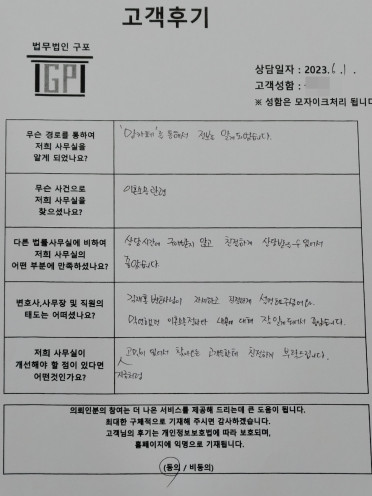 고객후기
법무법인 구포
GP
상담일자 : 2023. 6. 1.
고객성함 :
※ 성함은 모자이크처리 됩니다
무슨 경로를 통하여
저희 사무실을
알게 되었나요?
을 통해서 정보를 알게되었습니다.
무슨 사건으로
저희 사무실을
찾으셨나요?
이혼소송관련
다른 법률사무실에 비하여
저희 사무실의
어떤 부분에 만족하셨나요?
상담시간에 구애받지 않고 친절하게 상담받을수 있어서
좋았습니다
변호사,사무장 및 직원의
태도는 어떠셨나요?
자세하고 친절하게 설명해주셨어요.
막연했던 이혼소송절차나 내용에 대해 잘 알게되어서 좋았습니다.
저희 사무실이
개선해야 할 점이 있다면
어떤것인가요?
고민이 있어서 찾아오는 고객들한테 친절하게 부탁드립니다.
지금처럼
의뢰인분의 참여는 더 나은 서비스를 제공해 드리는데 큰 도움이 됩니다.
최대한 구체적으로 기재해 주시면 감사하겠습니다.
고객님의 후기는 개인정보보호법에 따라 보호되며,
홈페이지에 익명으로 기재됩니다.
(동의 / 비동의)